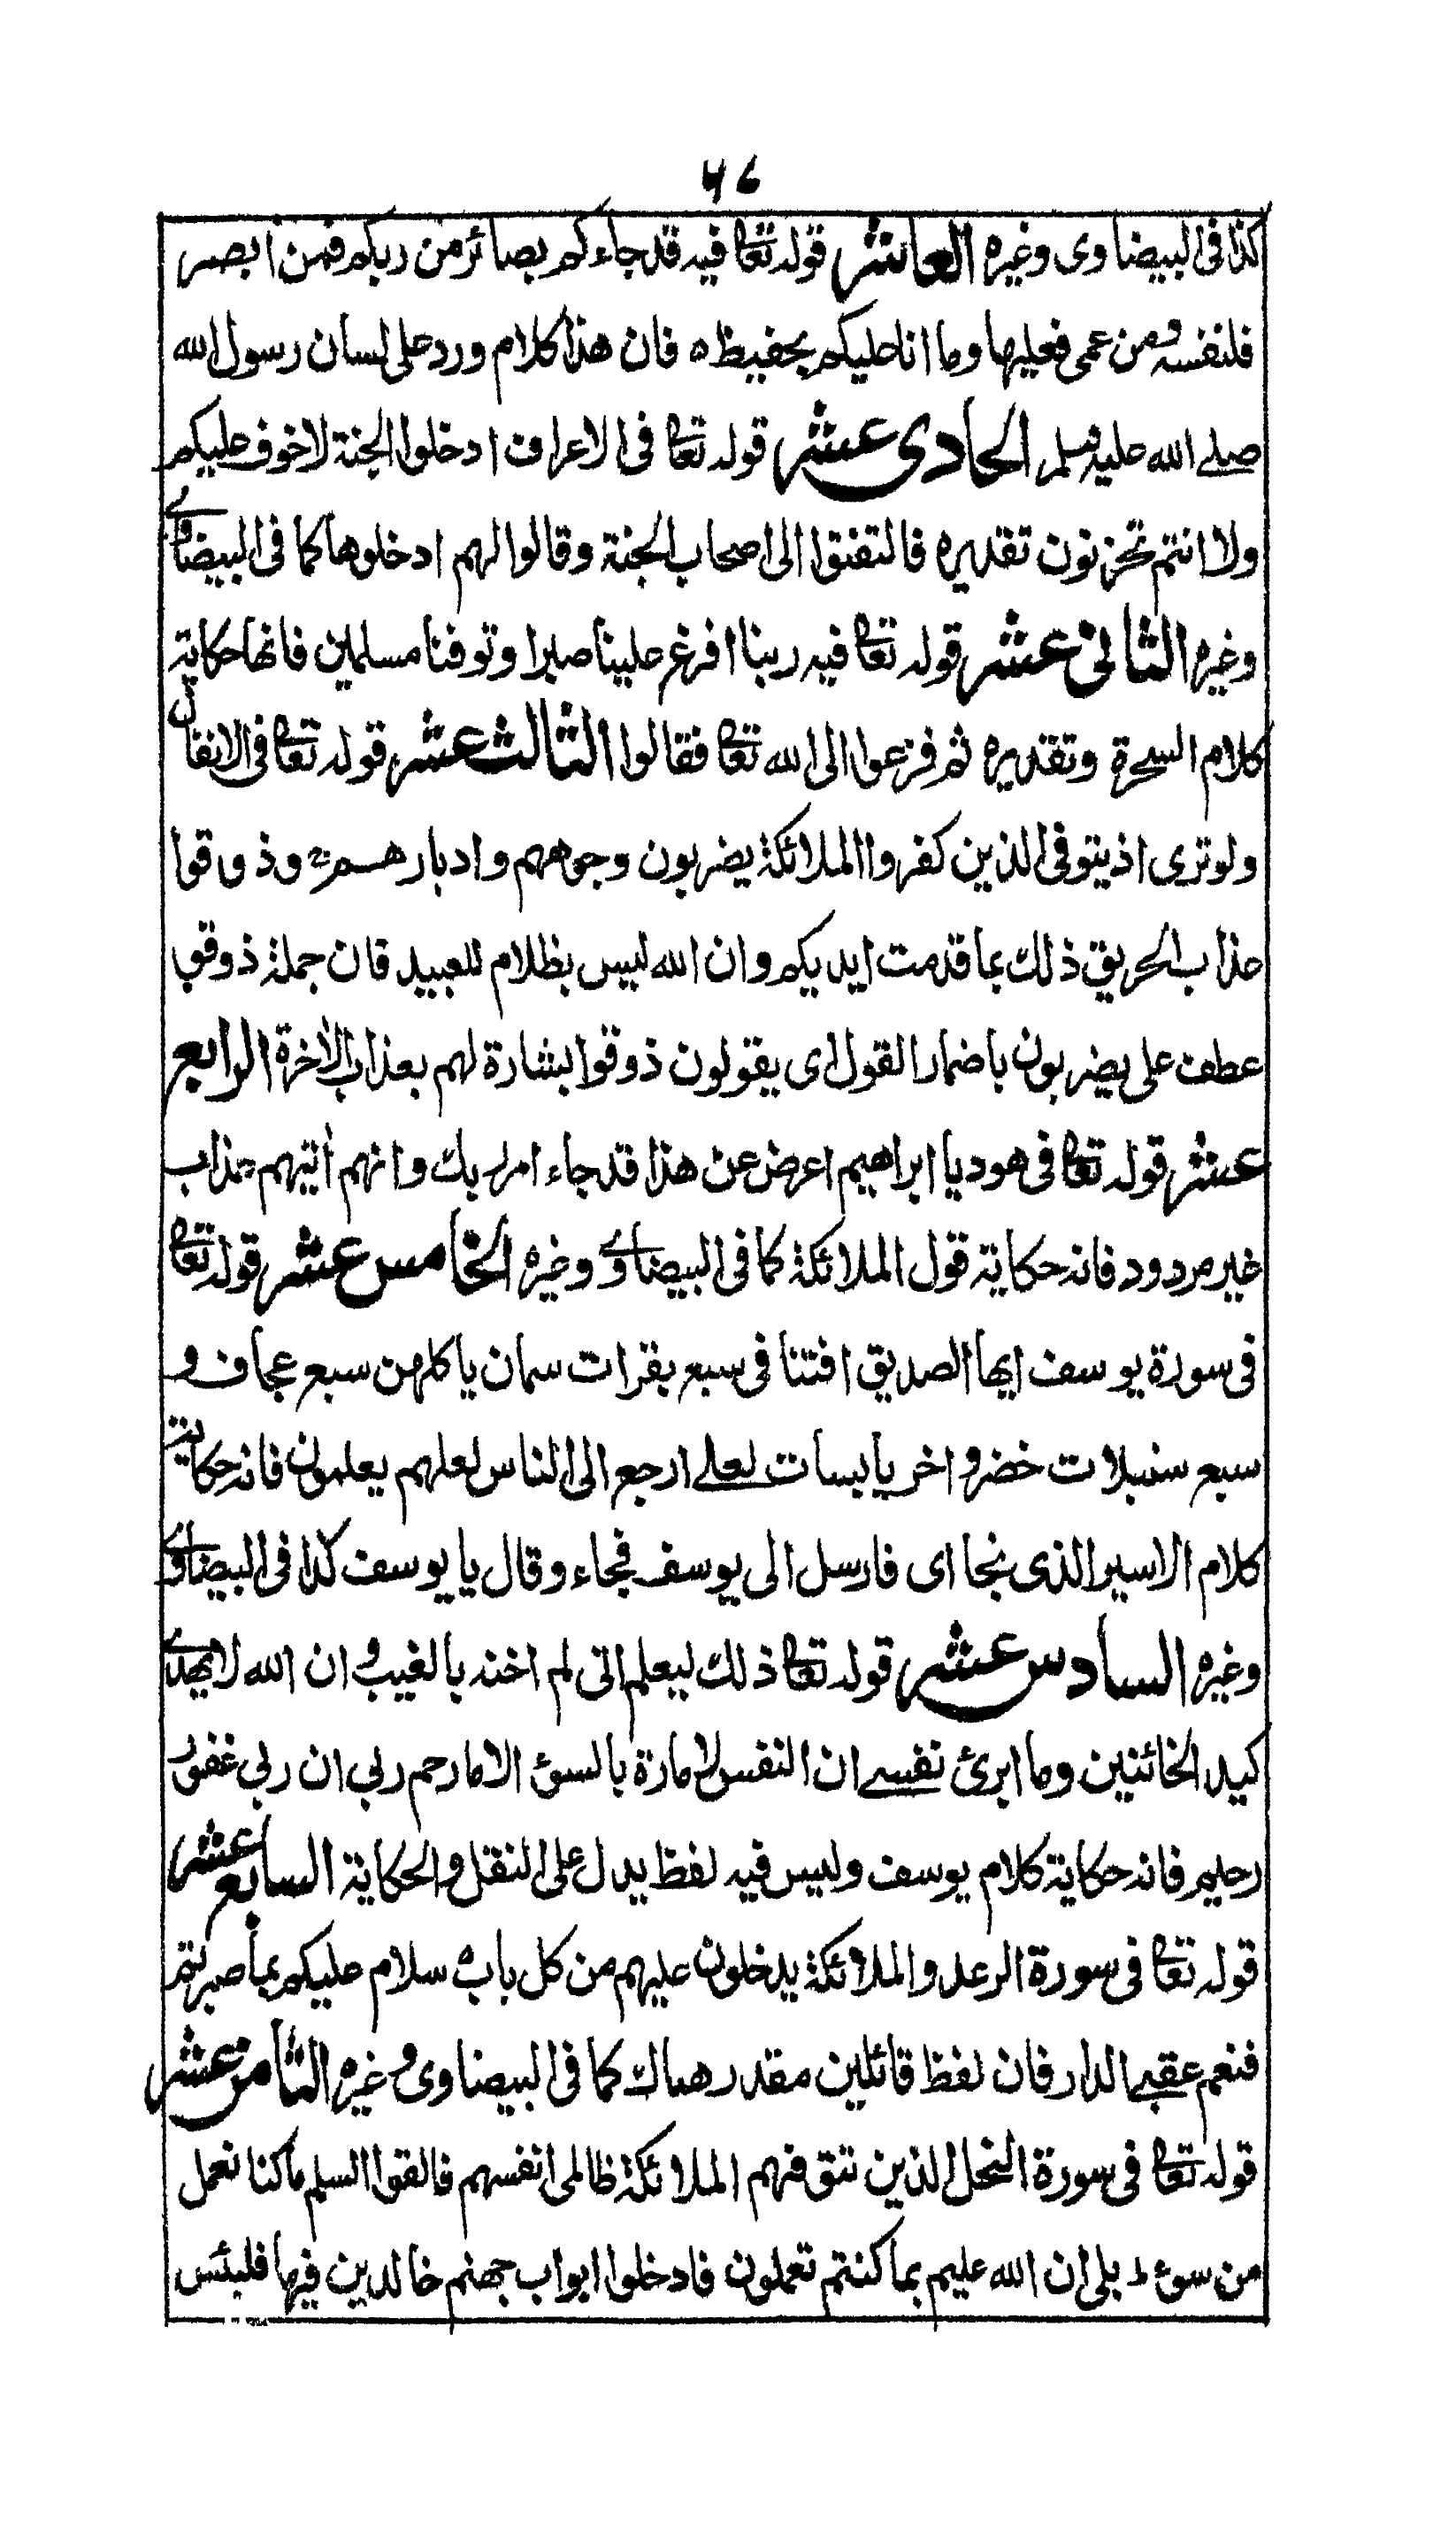 ۴۶
كذا فى البيضاوى وغيره العاشر قوله تعالى فيه قد جاءكم بصائر من ربكم فمن ابصر
فلنفسه ومن عمى فعليها وما انا عليكم بحفيظ ه فان هذا كلام ورد على لسان رسول الله
صلے الله عليه وسلم الحادى عشر قوله تعالى فى الاعراف ادخلوا الجنة لا خوف عليكم
ولا انتم تحزنون تقديره فالتفتوا الى اصحاب الجنة وقالوا لهم ادخلوها كما فى البيضاوے
وغيره الثانى عشر قوله تعالى فيه ربنا افرغ علينا صبرا وتوفنا مسلمين فانها حكاية
كلام السحرة وتقديره ثم فزعوا الى الله تعالى فقالوا الثالث عشر قوله تعالى فى الانفال
ولو ترى اذ يتوفى الذين كفروا الملائكة يضربون وجوههم وادبارهم وذوقوا
عذاب الحريق ذلك بما قدمت ايديكم وان الله ليس بظلام للعبيد فان جملة ذوقوا
عطف على يضربون باضمار القول اى يقولون ذوقوا بشارة لهم بعذاب الاخرة الرابع
عشر قوله تعالى فى هود يا ابراهيم اعرض عن هذا قد جاء امر ربك وانهم اتيهم عذاب
غير مردود فانه حكاية قول الملائكة كما فى البيضاوے وغيره الخامس عشر قوله تعالى
فى سورة يوسف ايها الصديق افتنا فى سبع بقرات سمان ياكلهن سبع عجاف و
سبع سنبلات خضر و اخر يابسات لعلے ارجع الى الناس لعلهم يعلمون فانه حكاية
كلام الاسير الذى نجا اى فارسل الى يوسف فجاء وقال يا يوسف كذا فى البيضاوے
وغيره السادس عشر قوله تعالى ذلك ليعلم انى لم اخنه بالغيب و ان الله لا يهدے
كيد الخائنين وما ابرئ نفسے ان النفس لامارة بالسوء الا ما رحم ربى ان ربى غفور
رحيم فانه حكاية كلام يوسف وليس فيه لفظ يدل على النقل والحكاية السابع عشر
قوله تعالى فى سورة الرعد والملائكة يدخلون عليهم من كل باب ه سلام عليكم بما صبرتم
فنعم عقبے الدار فان لفظ قائلين مقدر هناك كما فى البيضاوى وغيره الثامن عشر
قوله تعالى فى سورة النحل الذين تتوفهم الملائكة ظالمى انفسهم فالقوا السلم ما كنا نعمل
من سوء ط بلى ان الله عليم بما كنتم تعملون فادخلوا ابواب جهنم خالدين فيها فلبئس